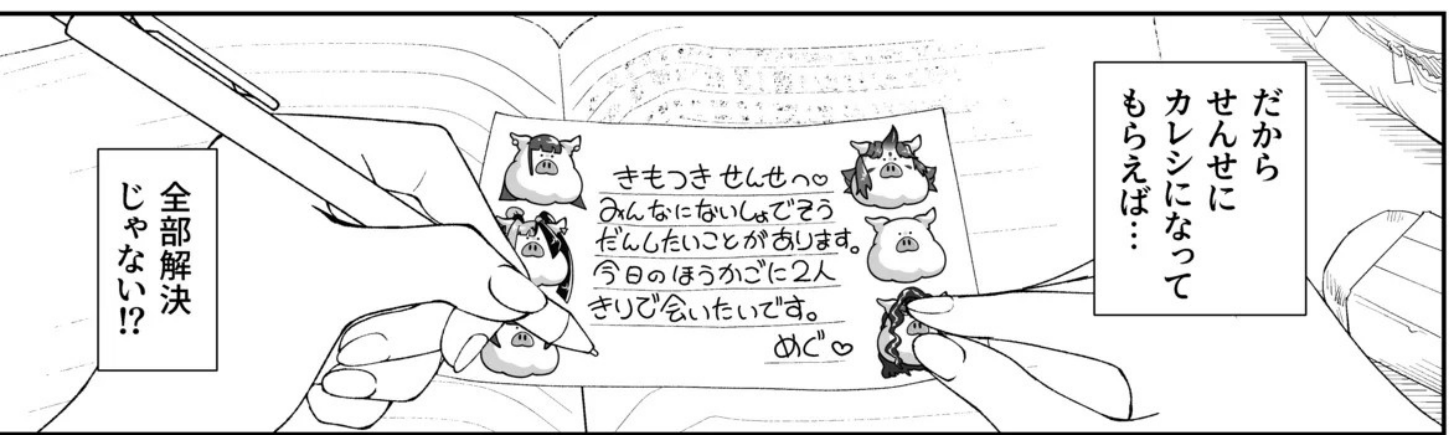 だから
せんせに
カレシになって
もらえば…
きもつき せんせへ♡
みんなにないしょでそう
だんしたいことがあります。
今日のほうかごに2人
きりで会いたいです。
めぐ♡
全部解決
じゃない!?